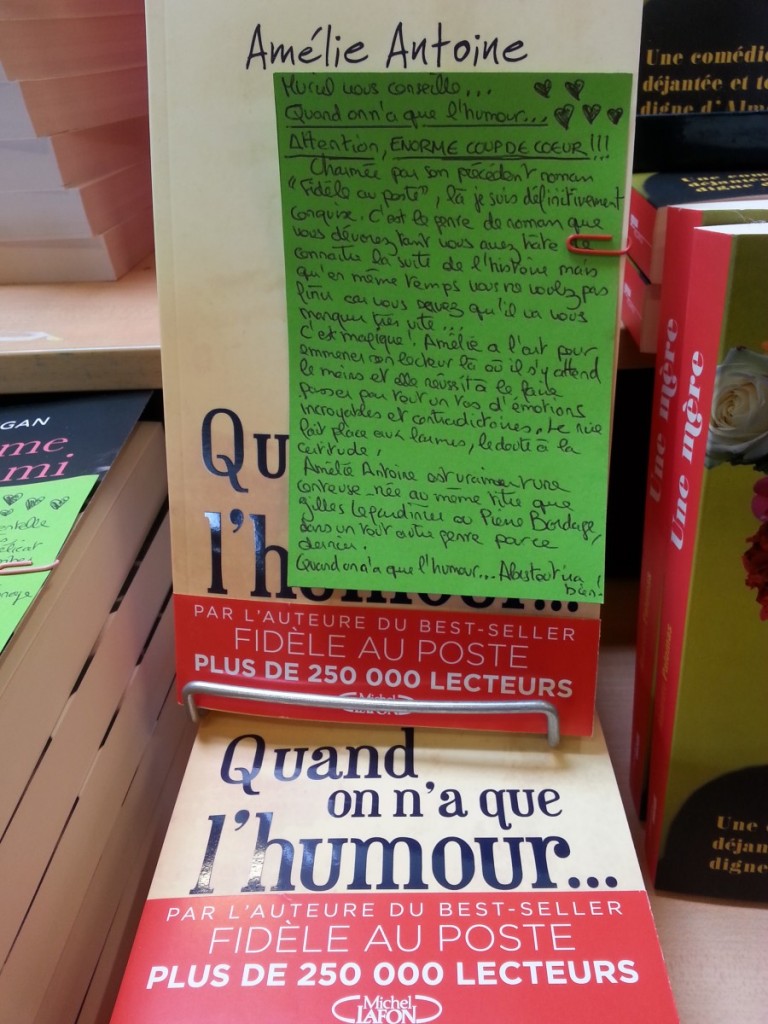 Amélie Antoine
Muriel vous conseille...
Quand on n'a que l'humour...
Attention, ENORME COUP DE COEUR !!!
Charmée par son précédent roman
"Fidèle au poste", là je suis définitivement
conquise. C'est le genre de roman que
vous dévorez tant vous avez hâte de
connaître la suite de l'histoire mais
qu'en même temps vous ne voulez pas
finir car vous savez qu'il va vous
manquer très vite...
C'est magique ! Amélie a l'art pour
emmener son lecteur là où il s'y attend
le moins et elle réussit à le faire
passer par tout un tas d'émotions
incroyables et contradictoires. Le rire
fait place aux larmes, le doute à la
certitude.
Amélie Antoine est vraiment une
conteuse née au même titre que
Gilles Legardinier ou Pierre Bordage,
dans un tout autre genre pour ce
dernier.
Quand on n'a que l'humour...
bien !
Qu
l'humour...
PAR L'AUTEURE DU BEST-SELLER
FIDÈLE AU POSTE
PLUS DE 250 000 LECTEURS
Michel
LAFON
Quand
on n'a que
l'humour...
PAR L'AUTEURE DU BEST-SELLER
FIDÈLE AU POSTE
PLUS DE 250 000 LECTEURS
Michel
LAFON
GAN
me
mi
Une comédie
déjantée et
digne d'Alm
Une mère
Une mère
Une
déjan
digne